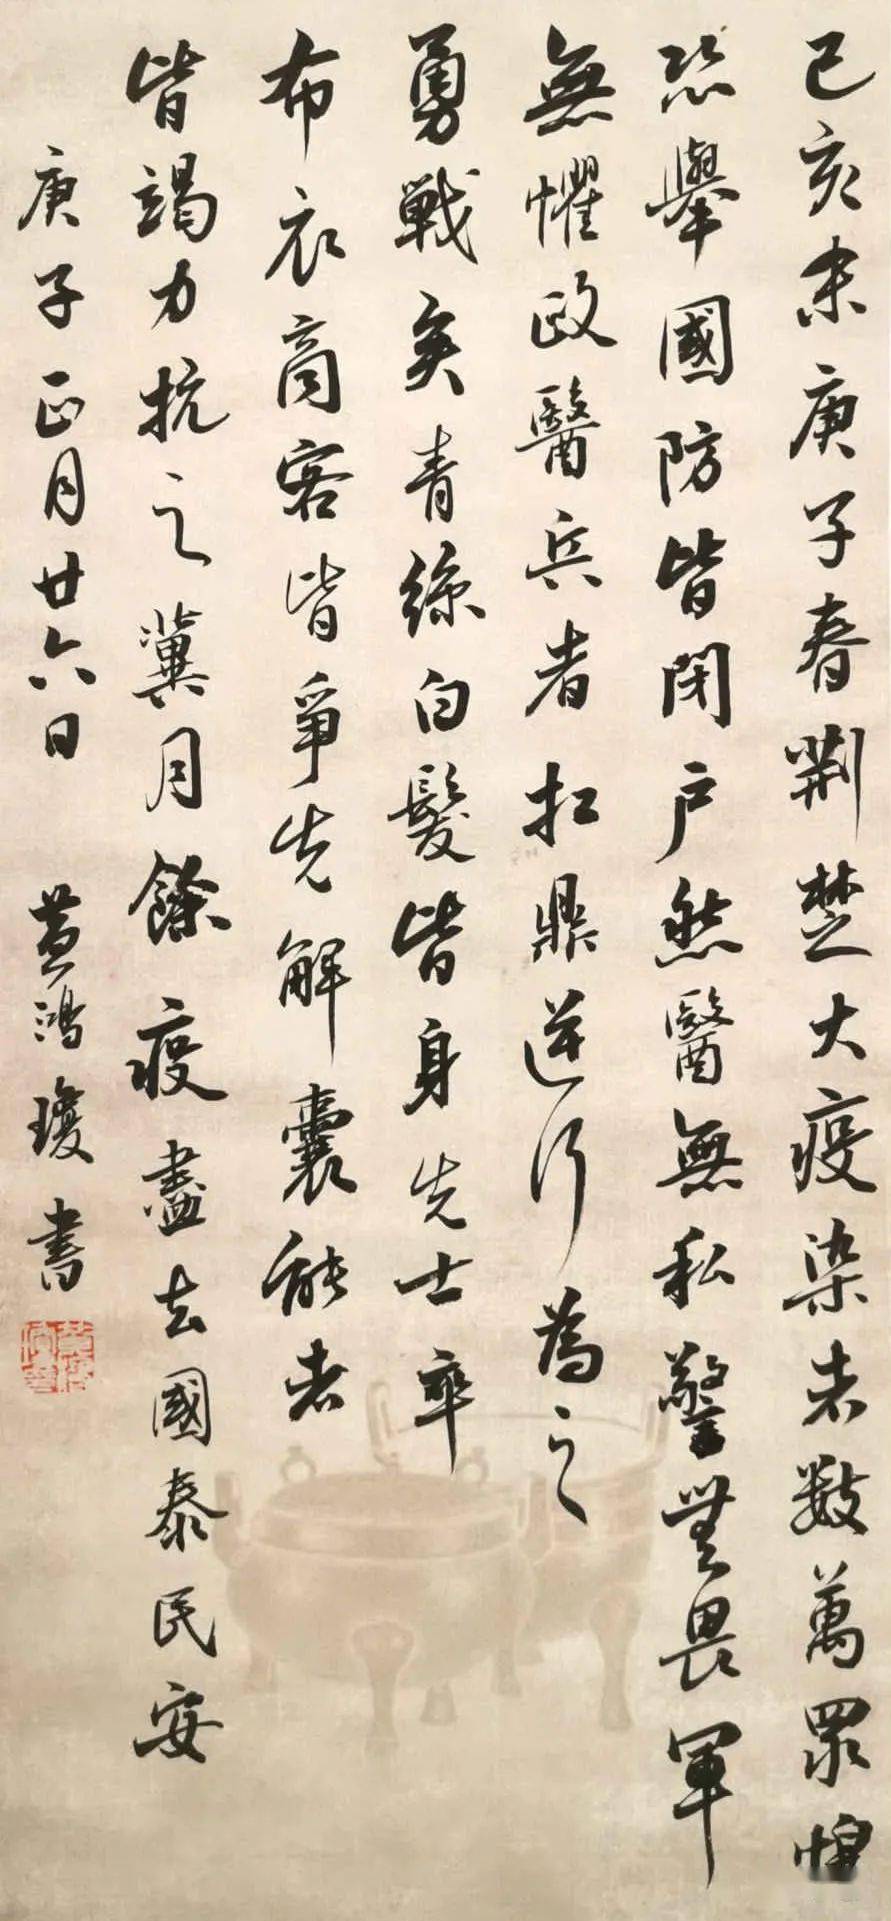 己亥末庚子春荆楚大疫染者數萬眾惶
恐舉國防皆閉户然醫無私警無畏軍
無懼政醫兵者扛鼎逆行為之
勇戰矣青絲白髮皆身先士卒
布衣商客皆爭先解囊能者
皆竭力抗之冀月餘疫盡去國泰民安
庚子正月廿六日 黄鴻瓊書